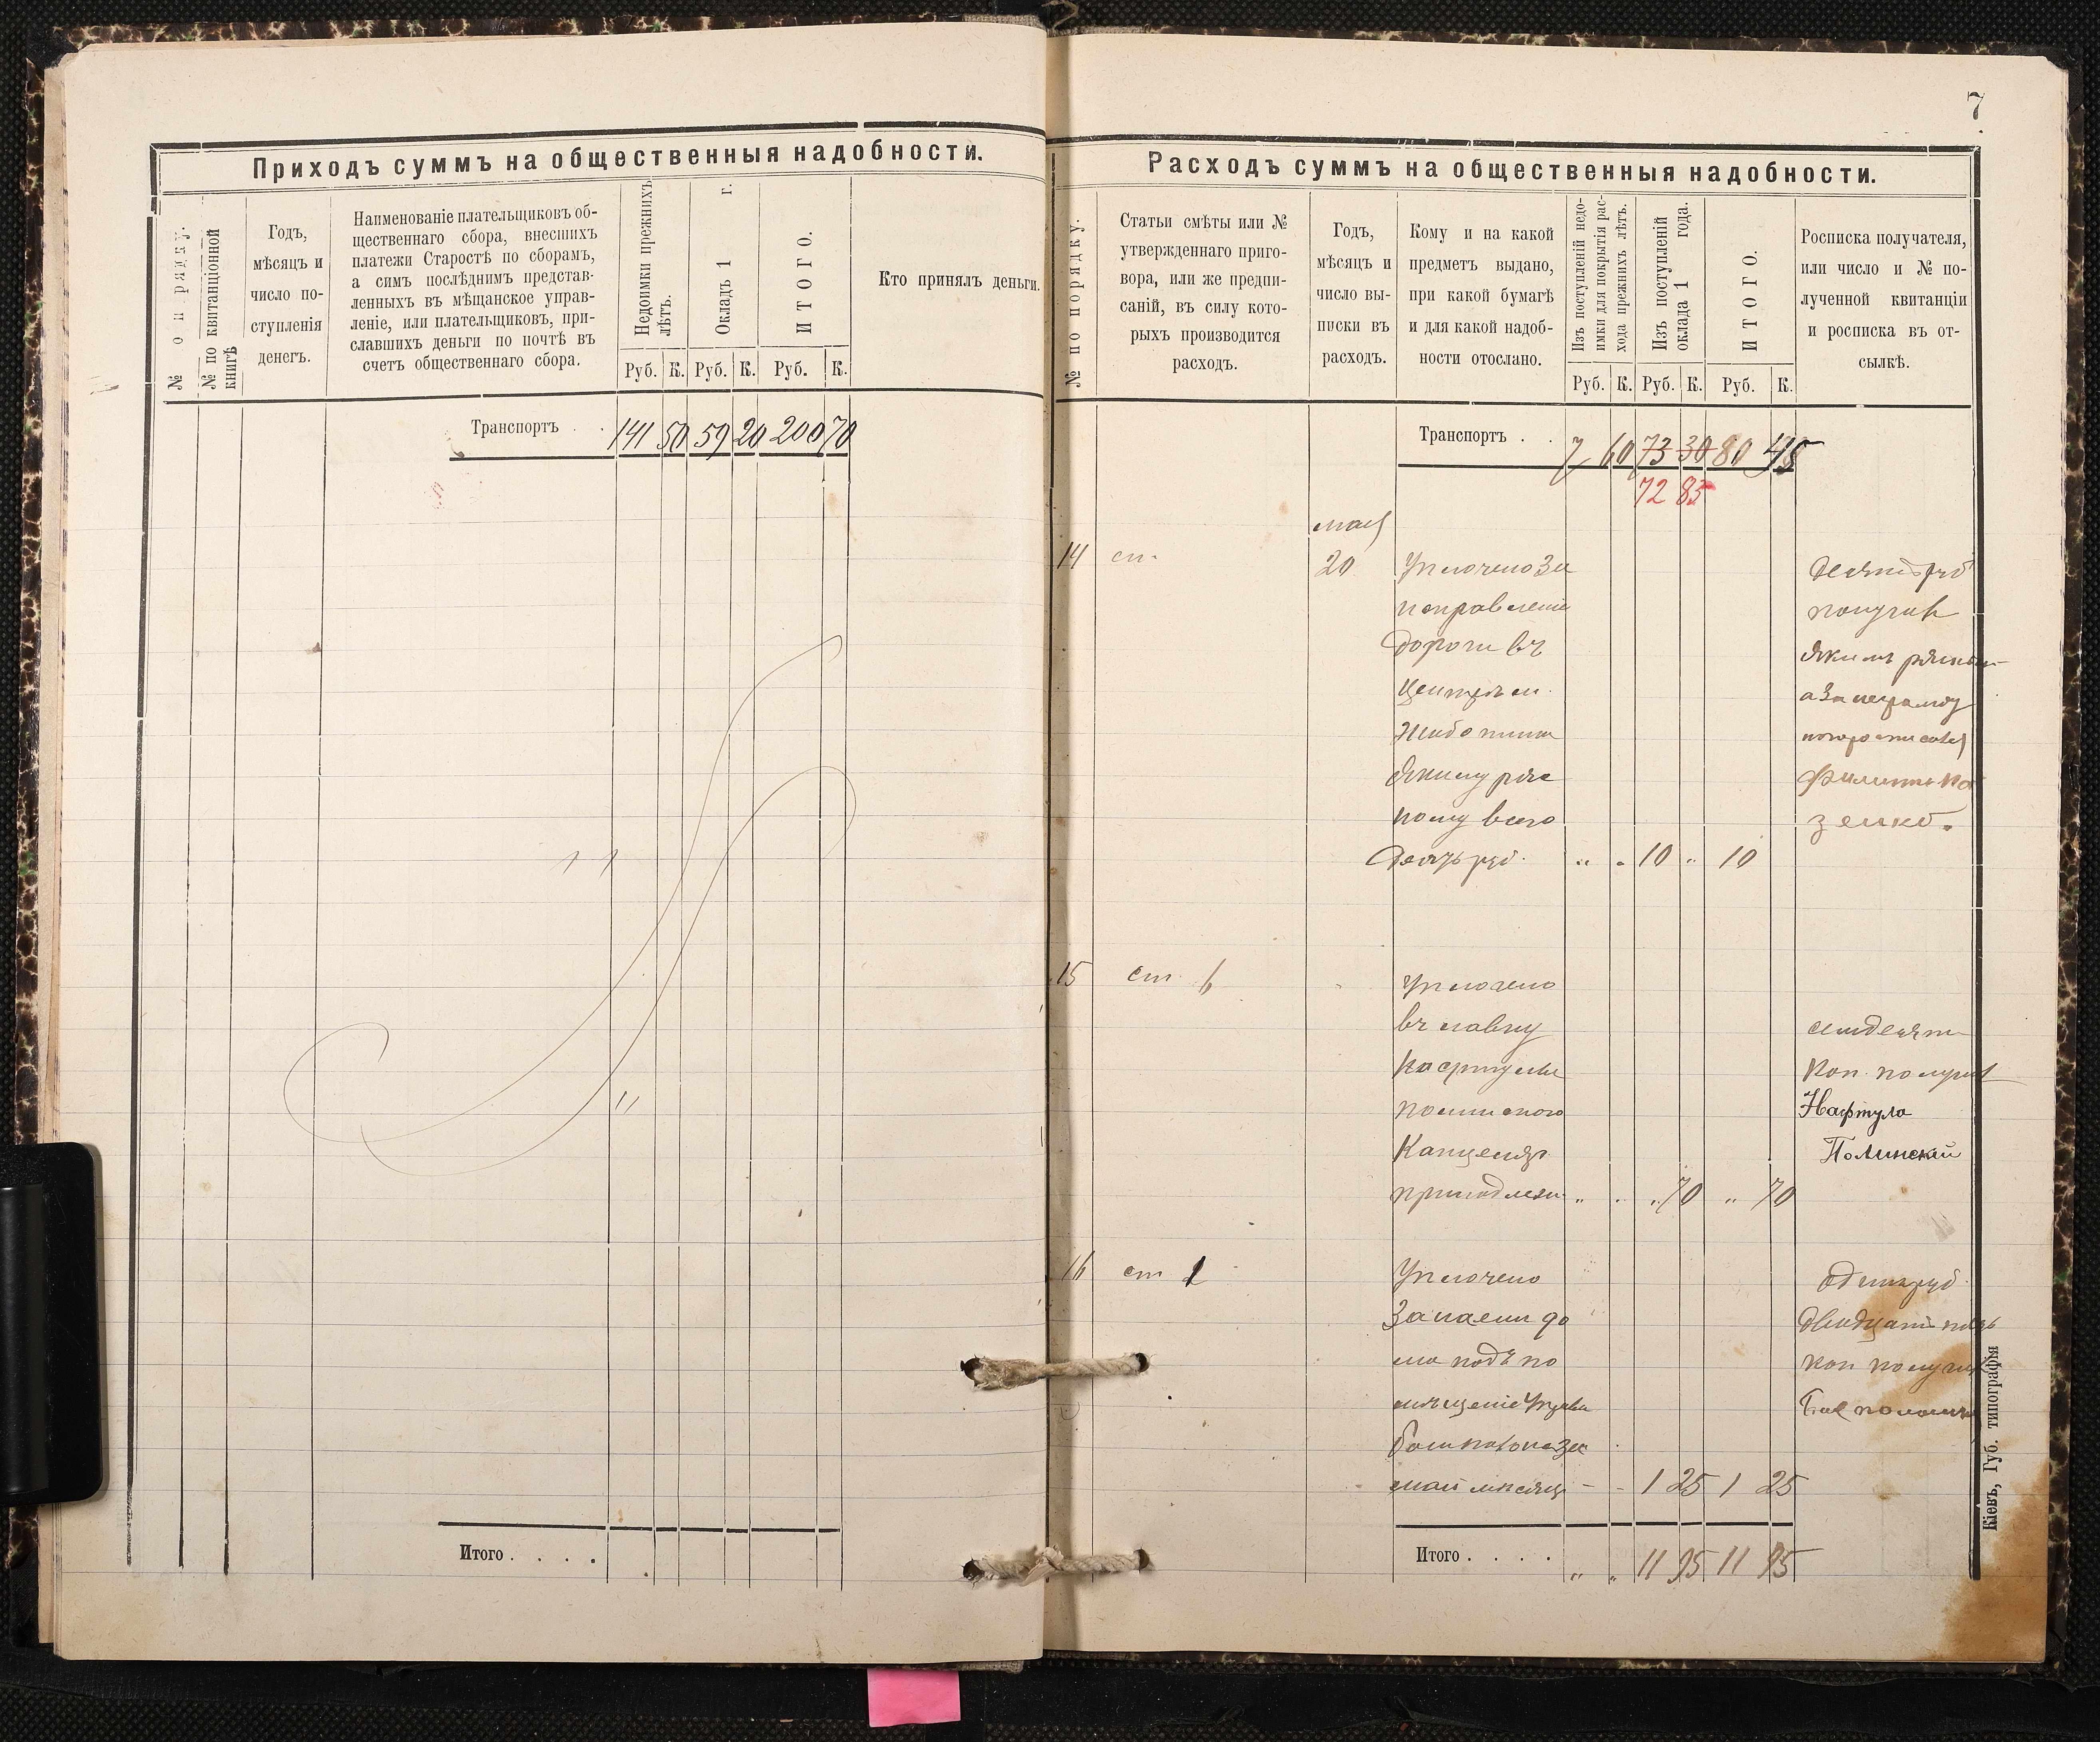 7
Приходъ суммъ на общественныя надобности.
№ по ряду.
№ по квитанціонной
книгѣ
Годъ,
мѣсяцъ и
число по-
ступленія
денегъ.
Наименованіе плательщиковъ об-
щественнаго сбора, внесшихъ
платежи Старостѣ по сборамъ,
а симъ послѣднимъ представ-
ленныхъ въ мѣщанское управ-
леніе, или плательщиковъ, при-
славшихъ деньги по почтѣ въ
счетъ общественнаго сбора.
Недоимки прежнихъ
лѣтъ.
Окладъ 1 г.
ИТОГО.
Кто принялъ деньги.
Руб. К. Руб. К. Руб. К.
Транспортъ . . 141 50 59 20 200 70
Итого . . . .
Расходъ суммъ на общественныя надобности.
№ по порядку.
Статьи смѣты или №
утвержденнаго приго-
вора, или же предпи-
саній, въ силу кото-
рыхъ производится
расходъ.
Годъ,
мѣсяцъ и
число вы-
писки въ
расходъ.
Кому и на какой
предметъ выдано,
при какой бумагѣ
и для какой надоб-
ности отослано.
Изъ поступленій недо-
имки для покрытія рас-
хода прежнихъ лѣтъ.
Изъ поступленій
оклада 1 года.
ИТОГО.
Росписка получателя,
или число и № по-
лученной квитанціи
и росписка въ от-
сылкѣ.
Руб. К. Руб. К. Руб. К.
Транспортъ . . 7 60 73 30 80 45
72 85
мая
14 ст. 20 Уплочено За
поправленіе
дороги въ
Якиму
кому всего
десять руб. " " 10 " 10
Десять руб
получилъ
Якимъ
а За неграмот
Филиппъ Ко
зенко.
15 ст 6 Уплочено
въ лавку
Нафтулы
Полинского
Канцеляр
принадлеж " " " 70 " 70
семдесят
Коп. получил
Нафтула
Полинскій
16 ст 1 Уплочено
За наем до
ма подъ по
мѣщеніе Управы
за
май мѣсяц - - 1 25 1 25
один руб
двадцать пять
коп получил
Итого . . . . " " 11 95 11 95
Кіевъ, Губ. типографія